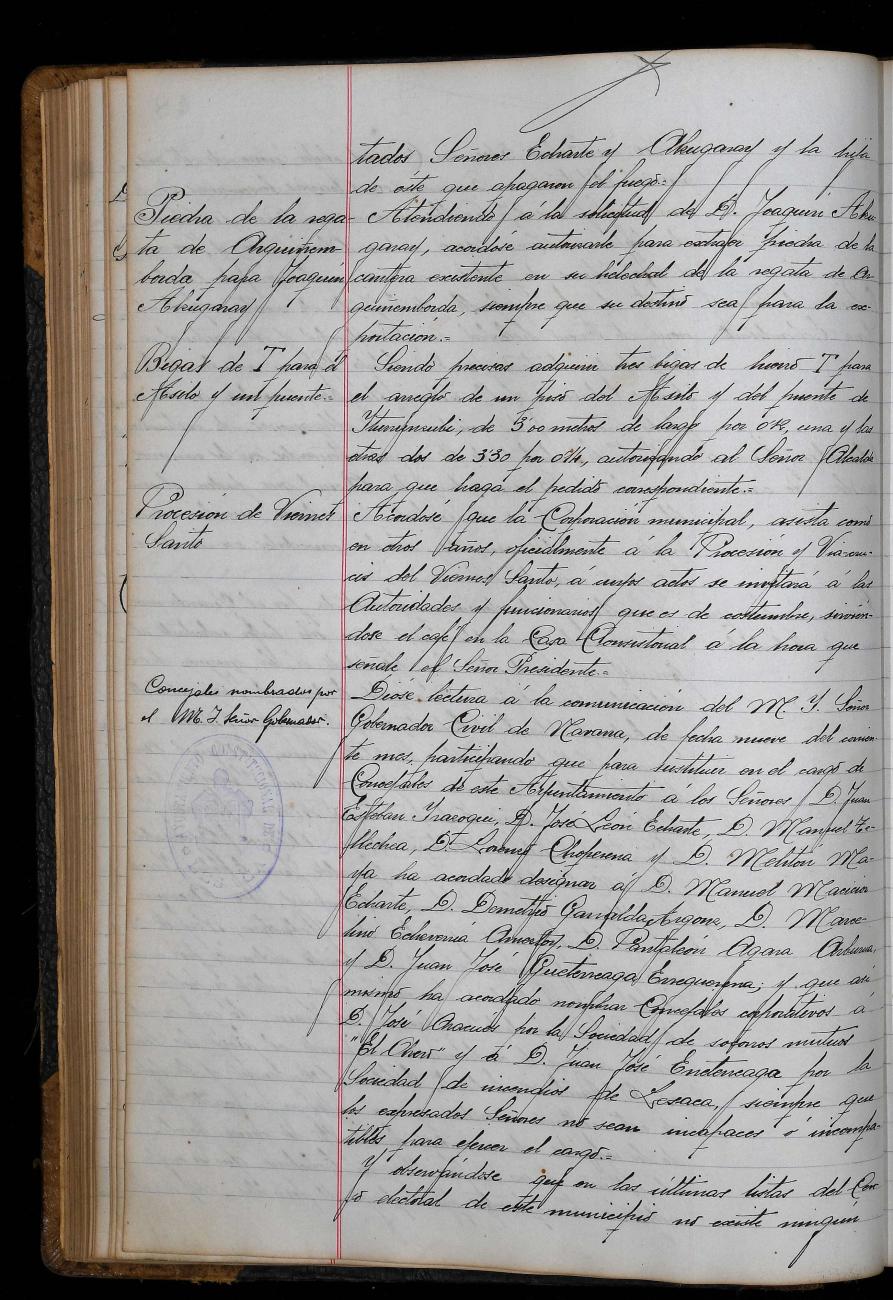 tados Señores Echarte y Alzugaray y la hija
de éste que apagaron el fuego.=
Piedra de la rega-
ta de Arguiñem-
borda para Joaquin
Alzugaray
Atendiendo á la solicitud de D. Joaquin Alzu-
garay, acordóse autorizarle para extraer piedra de la
cantera existente en su helechal de la regata de Ar-
guiñemborda, siempre que su destino sea para la ex-
portación.=
Bigas de T para el
Asilo y un puente.=
Siendo precisas adquirir tres bigas de hierro T para
el arreglo de un piso del Asilo y del puente de
de 5'00 metros de largo por una y las
otras dos de 3'30 por 0'14, autorizando al Señor Alcalde
para que haga el pedido correspondiente.=
Procesión de Viernes
Santo
Acordose que la Corporación municipal, asista como
en otros años, oficialmente á la Procesión y Via-cru-
cis del Viernes Santo, á cuyos actos se invitará á las
Autoridades y funcionarios que es de costumbre, sirvién-
dose el café en la Casa Consistorial á la hora que
señale el Señor Presidente.=
Concejales nombrados por
el M. I. Señor Gobernador.
Dióse lectura á la comunicación del M. Y. Señor
Gobernador Civil de Navarra, de fecha nueve del corrien-
te mes, participando que para sustituir en el cargo de
Concejales de este Ayuntamiento á los Señores D. Juan
Esteban Irazoqui, D. José León Echarte, D. Manuel Te-
llechea, D. Lorenzo Choperena y D. Melitón Ma-
ya ha acordado designar á D. Manuel Macicior
Echarte, D. Demetrio Garralda Argonz, D. Marce-
lino Echeverria D. Pantaleon Agara
y D. Juan José Erreguerena; y que asi
mismo ha acordado nombrar Concejales corporativos á
D. José por la Sociedad de socorros mutuos
"El Ahorro" y á D. Juan José por la
Sociedad de incendios de Lesaca, siempre que
los expresados Señores no sean incapaces ó incompa-
tibles para ejercer el cargo.=
Y observándose que en las últimas listas del Cen-
so electoral de este municipio no existe ningun
AYUNTAMIENTO CONSTITUCIONAL DE